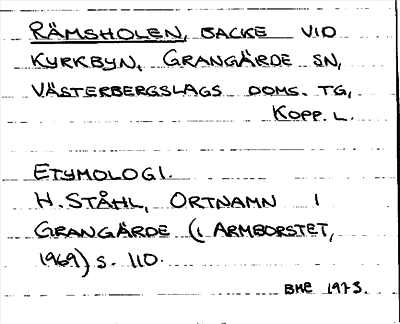 RÄMSHOLEN, BACKE VID
KYRKBYN, GRANGÄRDE SN,
VÄSTERBERGSLAGS DOMS. TG,
KOPP. L.
ETYMOLOGI.
H. STÅHL, ORTNAMN I
GRANGÄRDE (I ARMBORSTET,
1969) S. 110.
BME 1973.